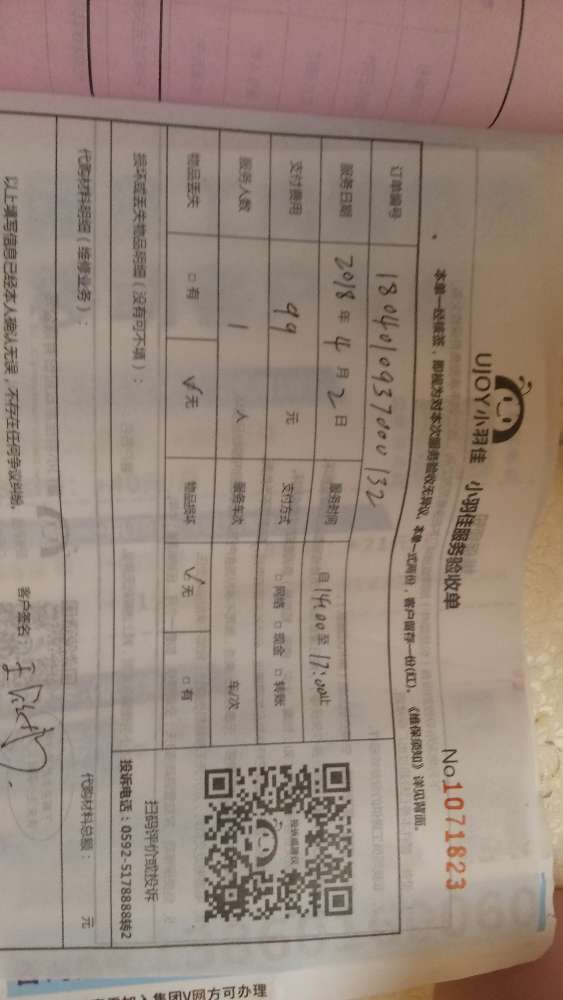 UJOY小羽佳 小羽佳服务验收单
No.1071823
本单一经接签，即视为对本次服务验收无异议，本单一式两份，客户留存一份(红)。《维保须知》详见背面。
订单编号 180401093700132
服务日期 2018年4月2日 服务时间 自14:00至17:00止
支付费用 99元 支付方式 □网络 □现金 □转账
服务人数 1人 服务车次 车/次
物品丢失 □有 √无 物品损坏 √无 □有
损坏或丢失物品明细（没有可不填）：
扫码评价或投诉
投诉电话：0592-5178888转2
代购材料明细（维修业务）： 代购材料总额： 元
以上填写信息已经本人确认无误，不存在任何争议纠纷。 客户签名：
集团V网方可办理